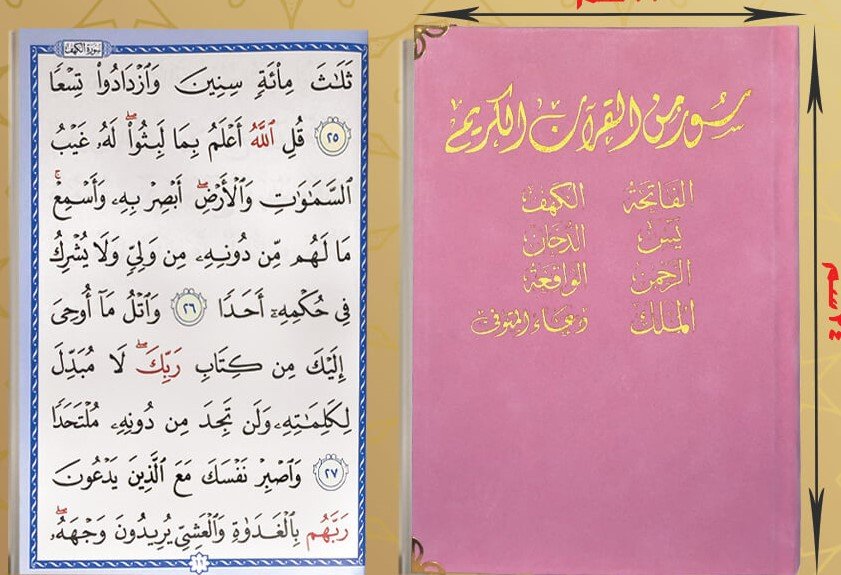 سور من القرآن الكريم
الفاتحة الكهف
يس الدخان
الرحمن الواقعة
الملك دعاء المتوفى
٢٤ سم
سورة الكهف
ثَلَٰثَ مِاْئَةٖ سِنِينَ وَٱزۡدَادُواْ تِسۡعٗا
٢٥ قُلِ ٱللَّهُ أَعۡلَمُ بِمَا لَبِثُواْۖ لَهُۥ غَيۡبُ
ٱلسَّمَٰوَٰتِ وَٱلۡأَرۡضِۖ أَبۡصِرۡ بِهِۦ وَأَسۡمِعۡۚ
مَا لَهُم مِّن دُونِهِۦ مِن وَلِيّٖ وَلَا يُشۡرِكُ
فِي حُكۡمِهِۦٓ أَحَدٗا ٢٦ وَٱتۡلُ مَآ أُوحِيَ
إِلَيۡكَ مِن كِتَابِ رَبِّكَۖ لَا مُبَدِّلَ
لِكَلِمَٰتِهِۦ وَلَن تَجِدَ مِن دُونِهِۦ مُلۡتَحَدٗا
٢٧ وَٱصۡبِرۡ نَفۡسَكَ مَعَ ٱلَّذِينَ يَدۡعُونَ
رَبَّهُم بِٱلۡغَدَوٰةِ وَٱلۡعَشِيِّ يُرِيدُونَ وَجۡهَهُۥۖ